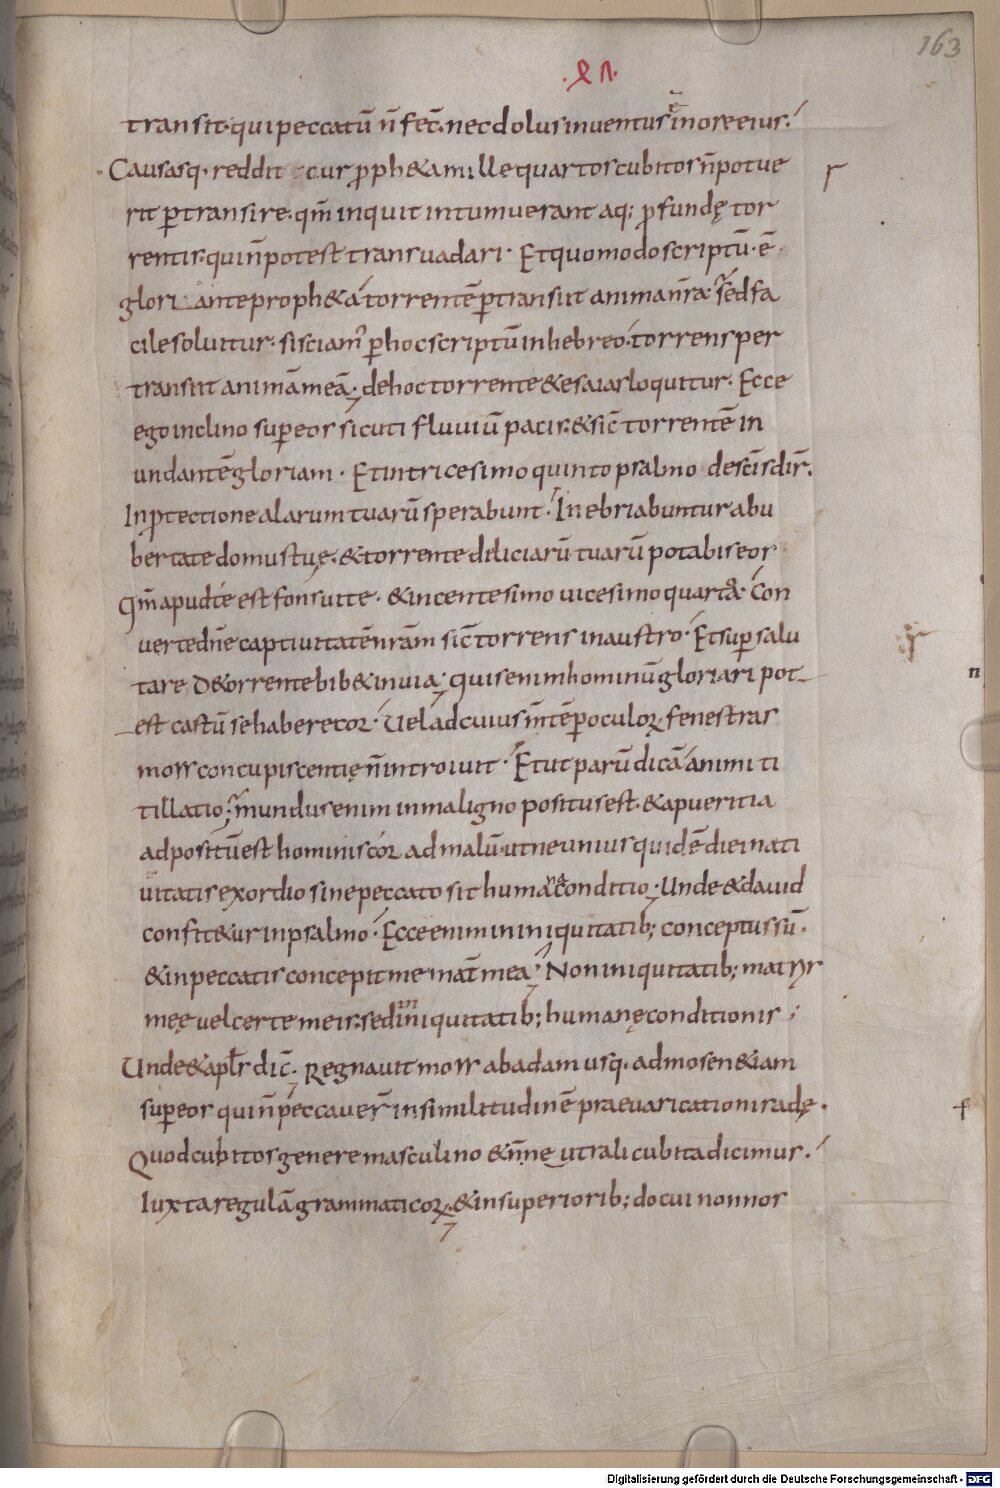 163
transit. qui peccatū n̄ fec̄. nec dolus inventus ē in ore eius.
Causasq. reddit cur proph&a mille quartos cubitos n̄ potue
rit ꝑtransire. qm̄ inquit intumuerant aq; ꝓfundę tor
rentis. qui n̄ potest transvadari. Et quomodo scriptū. ē
gloriante proph&a torrentē ꝑtransiit anima nr̄a. Sed fa
cile soluitur. si sciam' ꝑ hoc scriptū in hebreo. torrens per
transiit animā meā. de hoc torrente & esaias loquitur. Ecce
ego inclino suꝑ eos sicuti fluuiū pacis. & sic̄ torrentē in
undantē gloriam. Et in tricesimo quinto psalmo de sc̄is dr̄.
In ꝓtectione alarum tuarū sperabunt. Inebriabuntur ab u
bertate domus tuę. & torrente diliciarū tuarū potabis eos
Qm̄ apud te est fons vite. & in centesimo vicesimo quarto. Con
verte dn̄e captivitatē nr̄am sic̄ torrens in austro. Et suꝑ salu
tare. De torrente bib& in via. Quis enim hominū gloriari pot
est castū se habere cor. Vel ad cuius mentē ꝑ oculoꝝ fenestras
mors concupiscentię n̄ introivit. Et ut parū dicā animi ti
tillatio. mundus enim in maligno positus est. & a pueritia
adpositū est hominis cor ad malū. ut ne unius quidē diei nati
vitatis exordio sine peccato sit humana conditio. Unde & david
confit&ur in psalmo. Ecce enim in iniquitatib; conceptus sū.
& in peccatis concepit me mat̄ mea. Non iniquitatib; matris
meę vel certe meis. sed in iniquitatib; humanę conditionis;
Unde & apl̄s dic̄. Regnavit mors ab adam usq. ad mosen & iam
suꝑ eos qui n̄ peccaver̄ in similitudinē praevaricationis adę.
Quod cubitos genere masculino & n̄ neutrali cubita dicimus.
Iuxta regulā grammaticoꝝ. & in superiorib; docui non nos
Digitalisierung gefördert durch die Deutsche Forschungsgemeinschaft - DFG